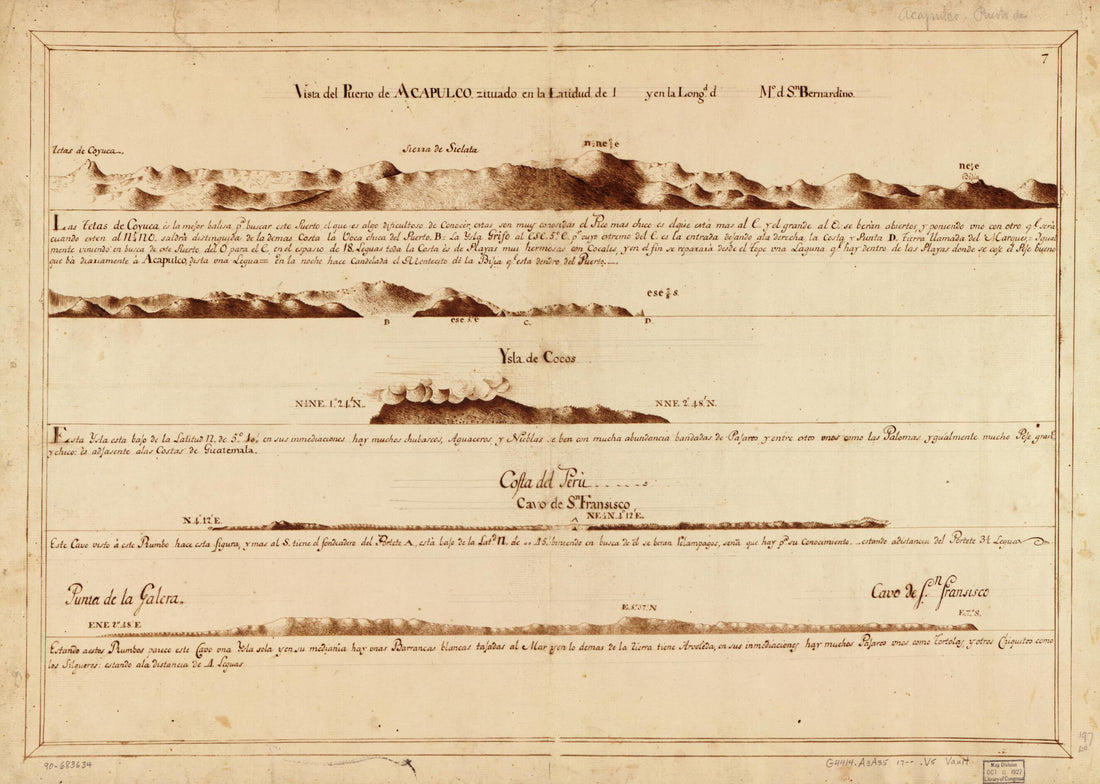 Acapulco, Puerto de
7
Vista del Puerto de ACAPULCO, zituado en la Latidud de 1 y en la Long.d d M.o d S.n Bernardino.
Tetas de Coyuca.
Sierra de Siclata
n¼ne
ne¼e
Las Tetas de Coyuca és la mejor balisa p.a buscar este Puerto el que es algo dificultoso de Conocer, estas son muy conosidas el Pico mas chico es el que está mas al E. y el grande al O. se berán abiertos y poniendo uno con otro q.e será
cuando esten al N¼NO. saldrá distinguida de la demas Costa la Voca chica del Puerto. B= La Ysla Grifo al ESE.5.o E. p.r cuyo extremo del E. es la entrada dejando ála derecha la Costa y Punta D. Tierra llamada del Marques= Igual
mente viniendo en busca de este Puerto del O para el E. en el espasio de 18 Leguas toda la Costa és de Playas muy hermosas con Cocales, y en el fin se reparará desde el tope una Laguna q.e hay dentro de las Playas donde se coje el Pese bueno
que bá diariamente á Acapulco, dista una Legua= En la noche hace Candelada el Montecito de la Bijia q.e esta dentro del Puerto.
ese s.
B ese.5.o e C. D.
Ysla de Cocos
N¼NE. 1.o 24' N. NNE 2.o 48' N.
Esta Ysla esta bajo de la Latitud N. de 5.o 40', en sus inmediaciones hay muchos chubascos, Aguaceros y Nieblas se ben con mucha abundancia bandadas de Pajaros y entre estos unos como las Palomas, y gualmente mucho Pese grande
y chico: és adjasente alas Costas de Guatemala.
Costa del Perù
Cavo de S.n Fransisco
N. 4.o 12' E. NE¼N. 4.o 12' E.
A
Este Cavo visto á este Rumbo hace esta figura, y mas al S. tiene el fondeadero del Portete A, está bajo de la Lat.d N. de 45' biniendo en busca de él se beran Relampagos, seña que hay p.a su Conocimiento estando adistancia del Portete 3¼ Leguas
Punta de la Galera.
Cavo de S.n Fransisco
ENE 2.o 48' E E.5.o 37' N E.7.o S.
Estando aestos Rumbos parece este Cavo una Ysla sola y en su mediania hay unas Barrancas blancas tajadas al Mar y en lo demas de la tierra tiene Arboleda, en sus inmediaciones hay muchos Pajaros unos como Tortolas, y otros Chiquitos como
los Silgueros: estando ala distancia de 4. Leguas
90-683634
G4414.A3A35 17-- .V5 Vault
Map Division
OCT 1927
Library of Congress